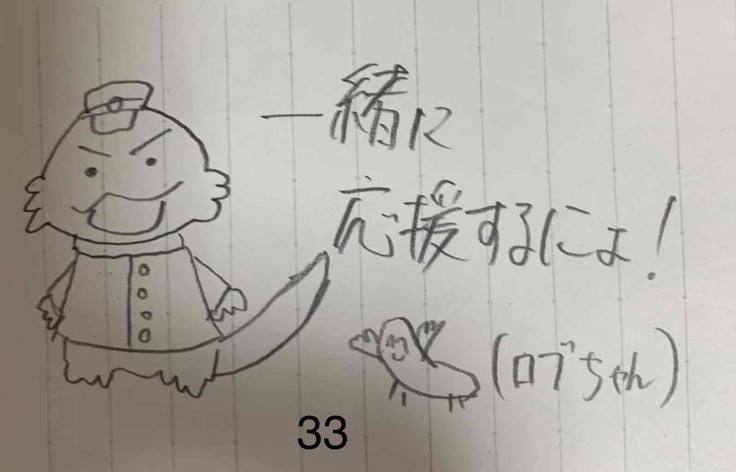 一緒に
応援するにょ!
(ロブちゃん)
33